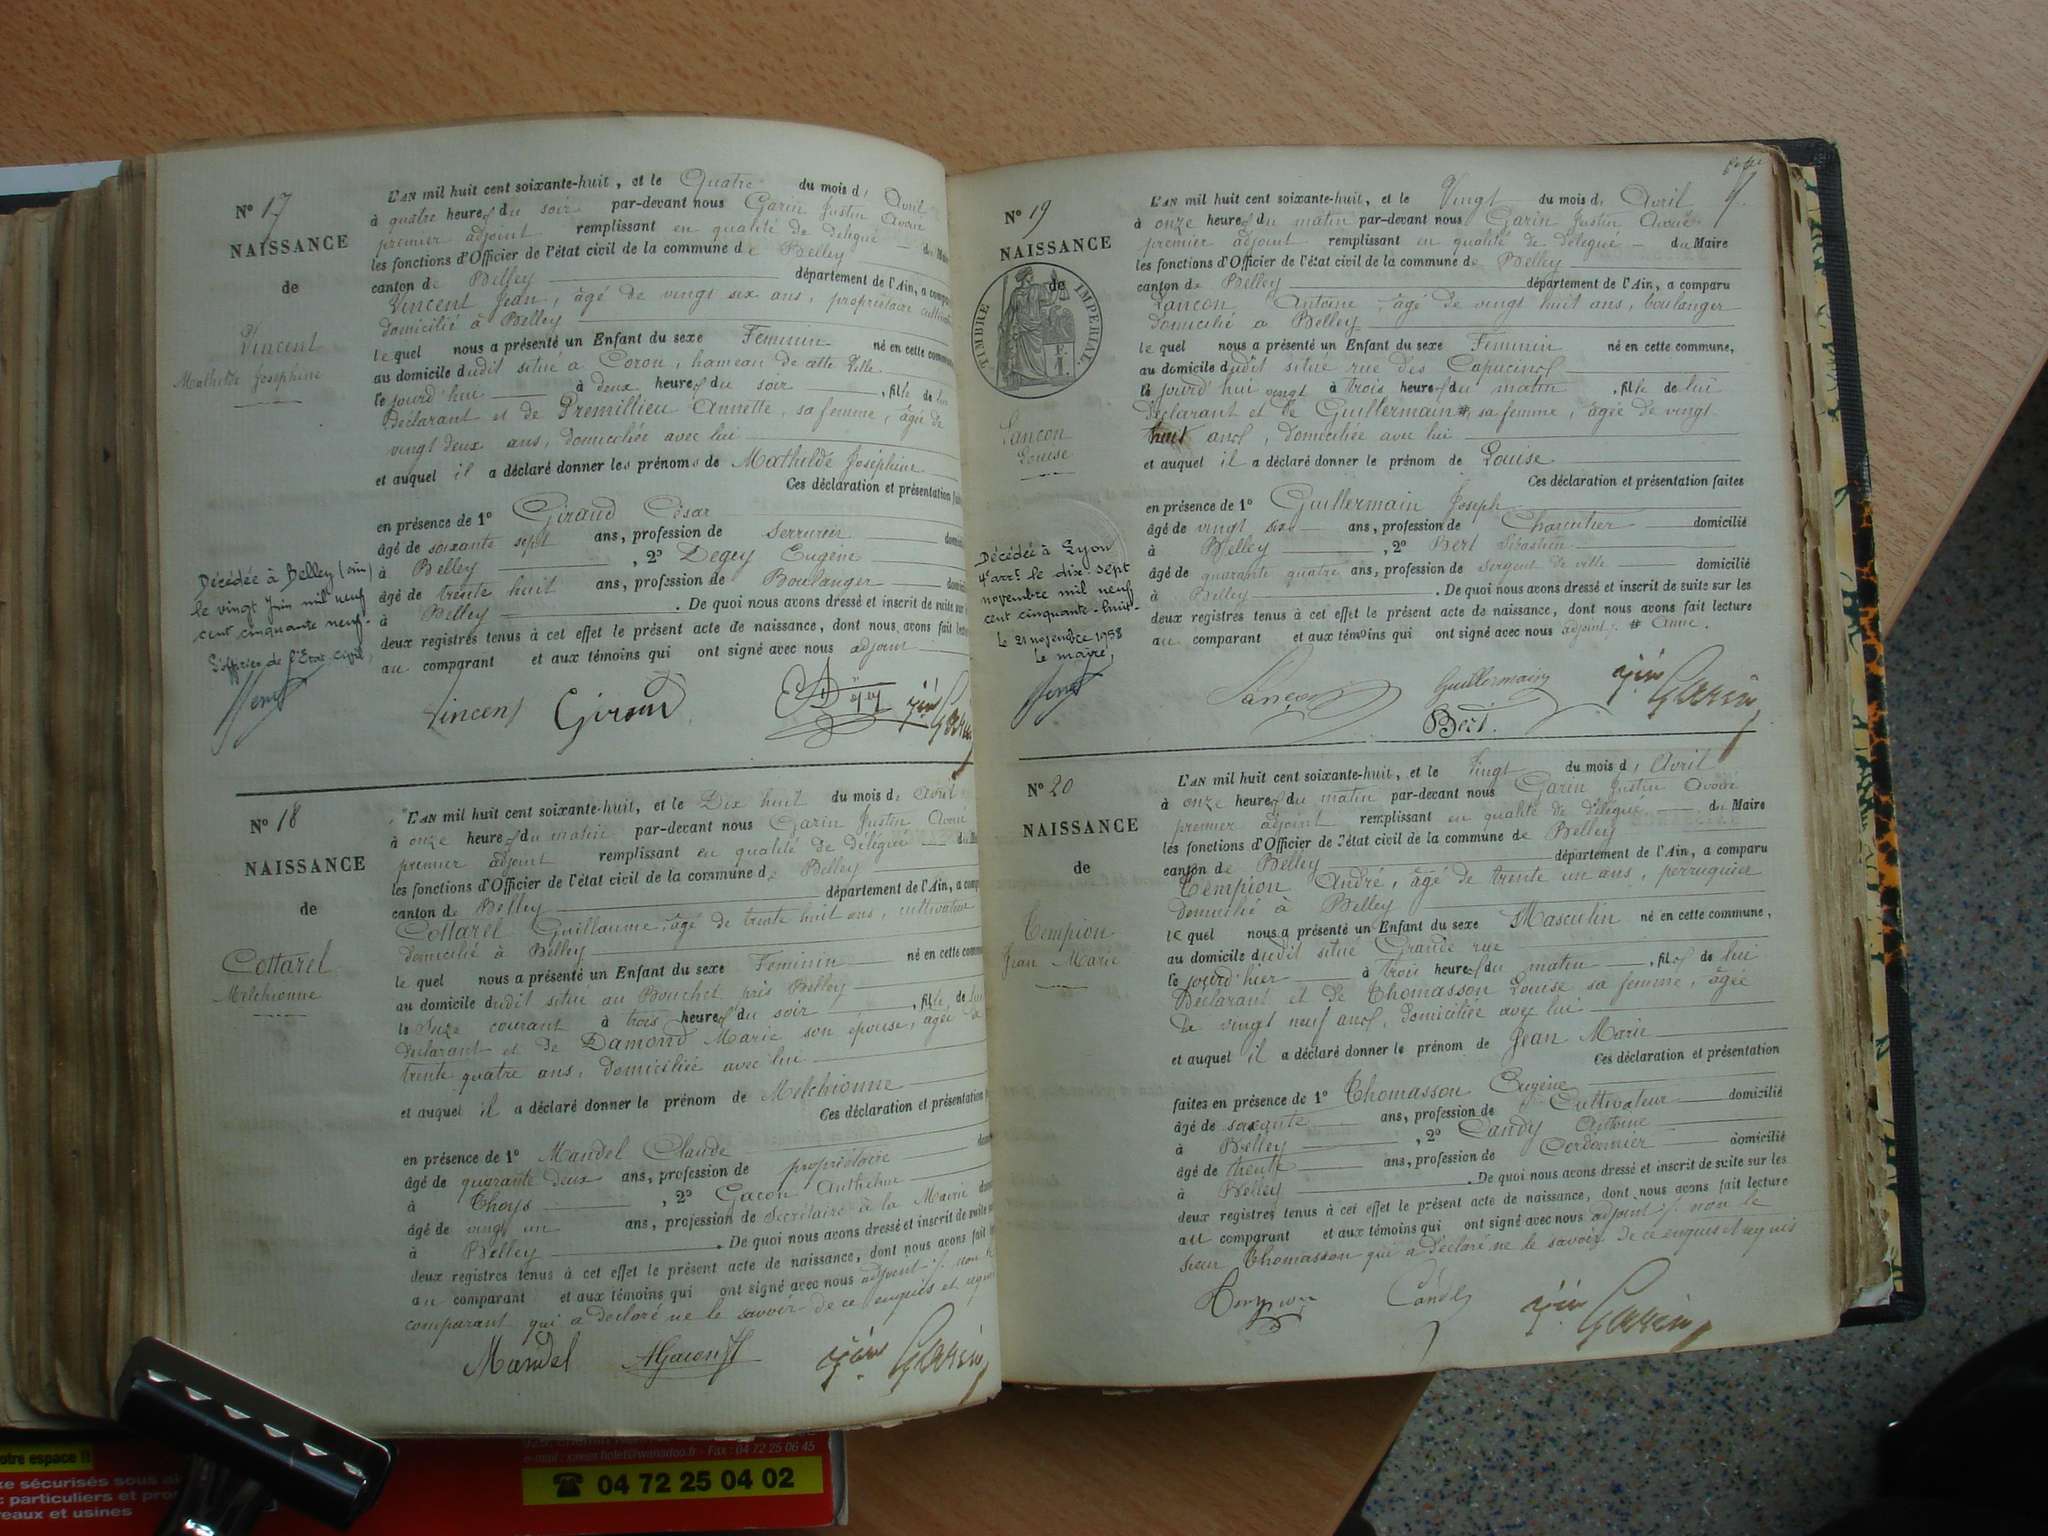 N° 17
NAISSANCE
de
Vincent
Mathilde Joséphine
Décédée à Belley (Ain)
le vingt Juin mil neuf
cent cinquante neuf.
L'officier de l'Etat Civil,
L'AN mil huit cent soixante-huit, et le Quatre du mois d' Avril
à quatre heures du soir par-devant nous Garin Justin Avoué
premier adjoint remplissant en qualité de délégué du Maire
les fonctions d'Officier de l'état civil de la commune de Belley
canton de Belley département de l'Ain, a compa
Vincent Jean, âgé de vingt six ans, propriétaire cultivat
domicilié à Belley
le quel nous a présenté un Enfant du sexe Feminin né en cette commune
au domicile dudit situé à Coron, hameau de cette Ville
le jourd'hui à deux heures du soir, fille de lui
Déclarant et de Premillieu Annette, sa femme, âgée de
vingt deux ans, domiciliée avec lui
et auquel il a déclaré donner les prénoms de Mathilde Joséphine
Ces déclaration et présentation fai
en présence de 1° Giraud César
âgé de soixante sept ans, profession de Serrurier domici
à Belley, 2° Degey Eugène
âgé de trente huit ans, profession de Boulanger domici
à Belley. De quoi nous avons dressé et inscrit de suite sur
deux registres tenus à cet effet le présent acte de naissance, dont nous avons fait lectu
au comparant et aux témoins qui ont signé avec nous adjoint
Vincent Giraud Garin
N° 18
NAISSANCE
de
Cottarel
Melchionne
L'AN mil huit cent soixante-huit, et le Dix huit du mois d' Avril
à onze heures du matin par-devant nous Garin Justin Avoué
premier adjoint remplissant en qualité de délégué du M
les fonctions d'Officier de l'état civil de la commune de Belley
canton de Belley département de l'Ain, a comp
Cottarel Guillaume, âgé de trente huit ans, cultivateur
domicilié à Belley
le quel nous a présenté un Enfant du sexe Feminin né en cette commu
au domicile dudit situé au Bouchet près Belley
le Onze courant à trois heures du soir, fille de lui
déclarant et de Damond Marie son épouse, âgée de
trente quatre ans, domiciliée avec lui
et auquel il a déclaré donner le prénom de Melchionne
Ces déclaration et présentation
en présence de 1° Mandel Claude
âgé de quarante deux ans, profession de propriétaire
à Thoys, 2° Gacon Anthelme
âgé de vingt un ans, profession de Secrétaire à la Mairie
à Belley. De quoi nous avons dressé et inscrit de suite
deux registres tenus à cet effet le présent acte de naissance, dont nous avons fait
au comparant et aux témoins qui ont signé avec nous adjoint, non le
comparant qui a déclaré ne le savoir de ce enquis et
Mandel AGacon Garin
N° 19
NAISSANCE
de
TIMBRE IMPERIAL
F.
1.
Lançon
Louise
Décédée à Lyon
4e arrt le dix-sept
novembre mil neuf
cent cinquante-huit
Le 21 novembre 1958
Le maire,
L'AN mil huit cent soixante-huit, et le Vingt du mois d' Avril
à onze heures du matin par-devant nous Garin Justin Avoué
premier adjoint remplissant en qualité de délégué du Maire
les fonctions d'Officier de l'état civil de la commune de Belley
canton de Belley département de l'Ain, a comparu
Lançon Antoine, âgé de vingt huit ans, boulanger
domicilié à Belley
le quel nous a présenté un Enfant du sexe Feminin né en cette commune,
au domicile dudit situé rue des Capucins
le jourd'hui vingt à trois heures du matin, fille de lui
déclarant et de Guillermain # sa femme, âgée de vingt
huit ans, domiciliée avec lui
et auquel il a déclaré donner le prénom de Louise
Ces déclaration et présentation faites
en présence de 1° Guillermain Joseph
âgé de vingt six ans, profession de domicilié
à Belley, 2° Bert Sébastien
âgé de quarante quatre ans, profession de Sergent de ville domicilié
à Belley. De quoi nous avons dressé et inscrit de suite sur les
deux registres tenus à cet effet le présent acte de naissance, dont nous avons fait lecture
au comparant et aux témoins qui ont signé avec nous adjoint. # Anne.
Lançon Guillermain Garin
Bert.
N° 20
NAISSANCE
de
Tempion
Jean Marie
L'AN mil huit cent soixante-huit, et le Vingt du mois d' Avril
à onze heures du matin par-devant nous Garin Justin Avoué
premier adjoint remplissant en qualité de délégué du Maire
les fonctions d'Officier de l'état civil de la commune de Belley
canton de Belley département de l'Ain, a comparu
Tempion André, âgé de trente un ans, perruquier
domicilié à Belley
le quel nous a présenté un Enfant du sexe Masculin né en cette commune,
au domicile dudit situé Grande rue
le jourd'hier à trois heures du matin, fils de lui
Déclarant et de Thomasson Louise sa femme, âgée
de vingt neuf ans, domiciliée avec lui
et auquel il a déclaré donner le prénom de Jean Marie
Ces déclaration et présentation
faites en présence de 1° Thomasson Eugène
âgé de soixante ans, profession de Cultivateur domicilié
à Belley, 2° Candy Antoine
âgé de trente ans, profession de Cordonnier domicilié
à Belley. De quoi nous avons dressé et inscrit de suite sur les
deux registres tenus à cet effet le présent acte de naissance, dont nous avons fait lecture
au comparant et aux témoins qui ont signé avec nous adjoint, non le
sieur Thomasson qui a déclaré ne le savoir de ce enquis et requis
Tempion Candy Garin
otre espace !!
xe sécurisés sous al
c particuliers et pro
reaux et usines
e-mail : xavier.holet@wanadoo.fr - Fax : 04 72 25 06 45
☎ 04 72 25 04 02